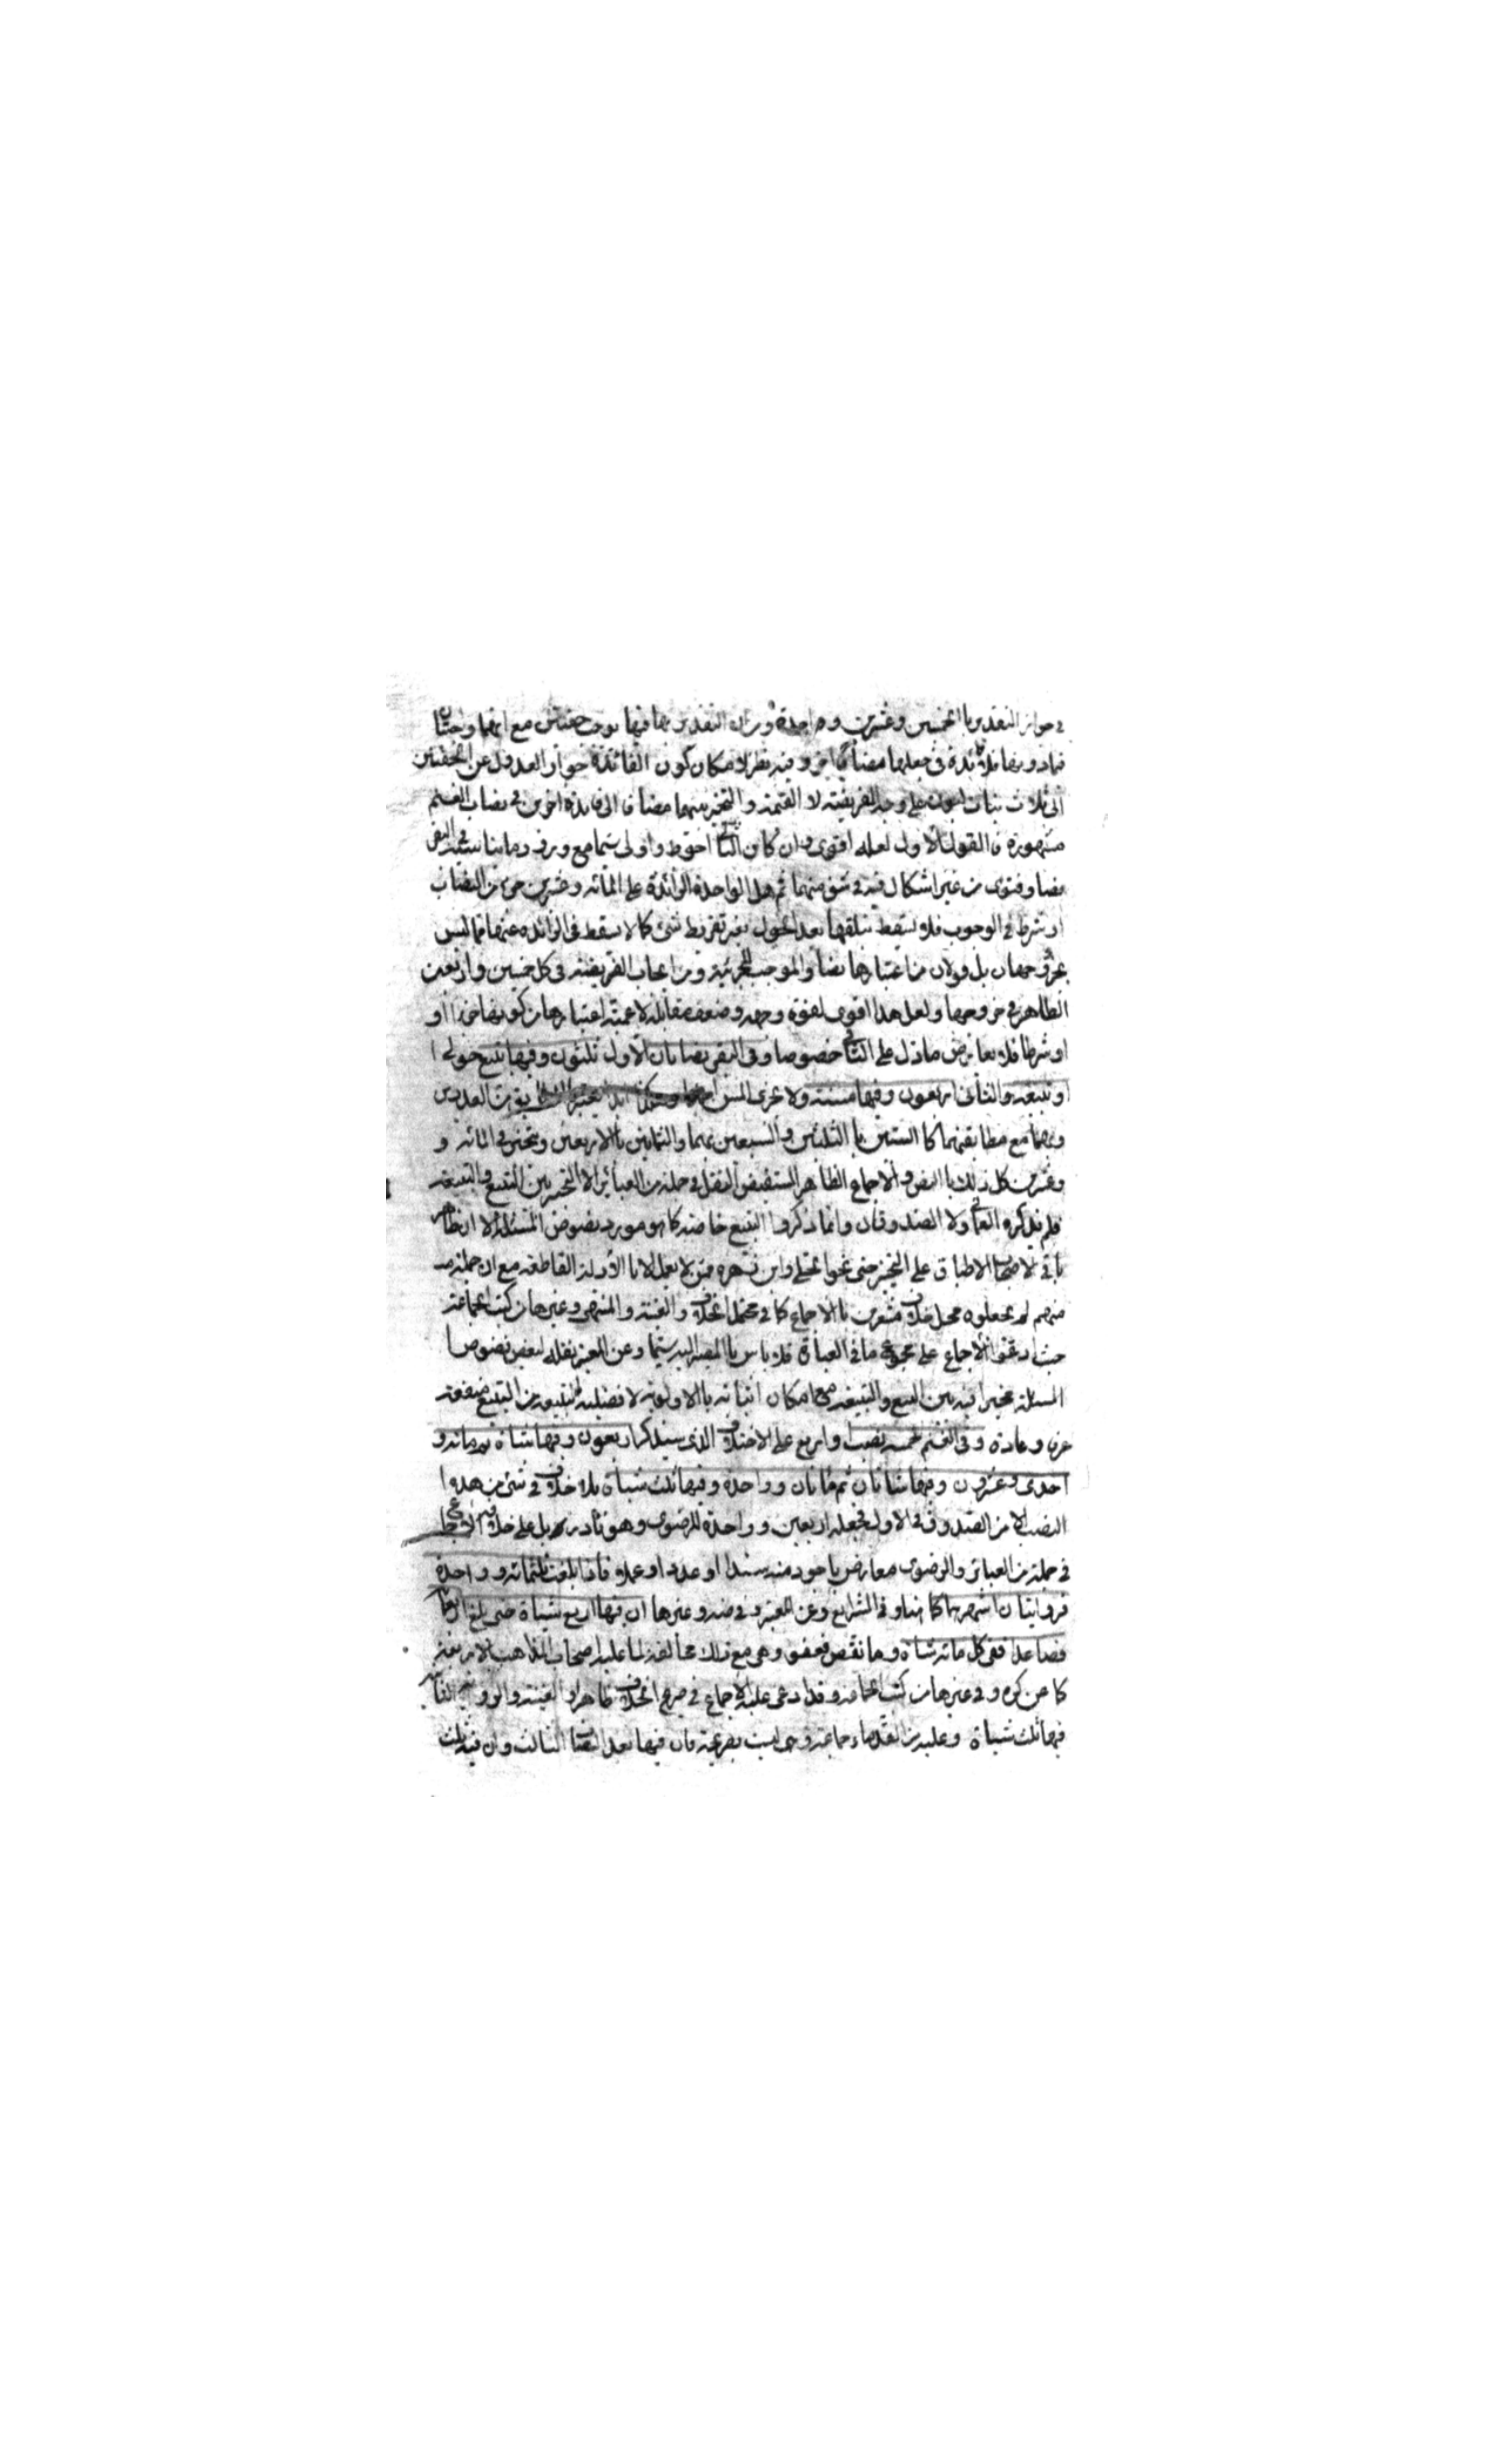 في جواز التقدير بالخمسين وعشرين وواحدة وان التقدير بها فيها يوجب حقتين مع انهما واجبتان
فيما دونها فلا فائدة في جعلها نصابا اخر وفيه نظر لامكان كون الفائدة جواز العدول عن الحقتين
الى ثلاث بنات لبون على وجه الفريضة لا القيمة والتخيير بينهما مضافا الى فائدة اخرى في نصاب الغنم
مشهورة فالقول الاول لعله اقوى وان كان الثاني احوط واولى سيما مع ورود ما يناسبه في البقر
نصا وفتوى من غير اشكال فيه في شئ منهما ثم هل الواحدة الزائدة على المائة وعشرين جزء من النصاب
او شرط في الوجوب فلا يسقط بتلفها بعد الحول بغير تفريط شئ كما لا يسقط في الزائدة عنها مما ليس
بجزء وجهان بل قولان من اعتبارها نصا والموجب للجزئية ومن ايجاب الفريضة في كل خمسين واربعين
الظاهر في خروجها ولعل هذا اقوى لقوة وجهه وضعف مقابله لاعمية اعتبارها من كونها جزءا او
او شرطا فلا يعارض ما دل على الثاني خصوصا وفي البقر نصابان الاول ثلثون وفيها تبيع حولي
او تبيعة والثاني اربعون وفيها مسنة ولا يجزي المسن بقرب العددين
وبهما مع مطابقتهما كالستين بالثلثين والسبعين بهما والثمانين بالاربعين ويتخير في المائة و
وعشرين كل ذلك بالنص والاجماع الظاهر المستفيض النقل في جملة من العبائر الا التخيير بين التبيع والتبيعة
فلم يذكره العماني ولا الصدوقان وانما ذكروا التبيع خاصة كما هو مورد نصوص المسئلة الا ان ظاهر
باقي الاصحاب الاطباق على التخيير حتى نحو الحلي وابن زهرة ممن لا يعمل الا بالادلة القاطعة مع ان جملة
منهم لم يجعلوه محل خلاف مشعرين بالاجماع كما في محتمل الخلاف والغنية والمنتهى وغيرها من كتب الجماعة
حيث ادعوا الاجماع على مجموع ما في العبارة فلا باس بالمصير اليه سيما وعن المعتبر نقله لبعض نصوص
المسئلة مخيرا فيه بين التبيع والتبيعة مع امكان اثباته بالاولوية لافضلية التبيعة من التبيع منفعة
عرفا وعادة وفي الغنم خمسة نصب او اربع على الاختلاف الذي سيذكر اربعون وفيها شاة ثم مائة و
احدى وعشرون وفيها شاتان ثم مائتان وواحدة وفيها ثلث شياة بلا خلاف في شئ من هذه
النصب الا من الصدوق في الاول فجعله اربعين وواحدة للرضوي وهو نادر بل على خلافه الاجماع
في جملة من العبائر والرضوي معارض باجود منه سندا او عددا وعملا فاذا بلغت ثلثمائة وواحدة
فروايتان اشهرهما كما هنا وفي الشرايع وعن المعتبر وفي ضه وغيرها ان فيها اربع شياة حتى يبلغ اربعمائة
فصاعدا ففي كل مائة شاة وما نقص فعفو وهي مع ذلك مخالفة لما عليه اصحاب المذاهب الاربعة
كما عن كره وفي غيرها من كتب الجماعة وقد ادعى عليه الاجماع في صريح الخلاف ظاهر الغنية والرواية الثانية
فيها ثلث شياة وعليه من القدماء جماعة وهي ليست بصريحة فان فيها بعد النصاب الثالث وان فيه ثلث